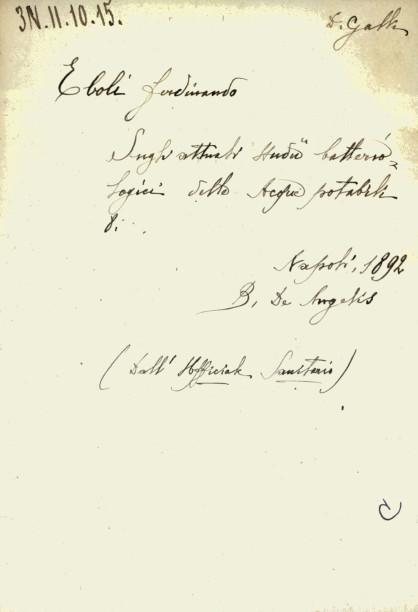 3N.II.10.15.
D. Galli
Eboli Ferdinando
Sugli attuali studii batterio=
logici delle Acque potabili
8:
Napoli, 1892
B. De Angelis
(Dall' Ufficiale Sanitario)